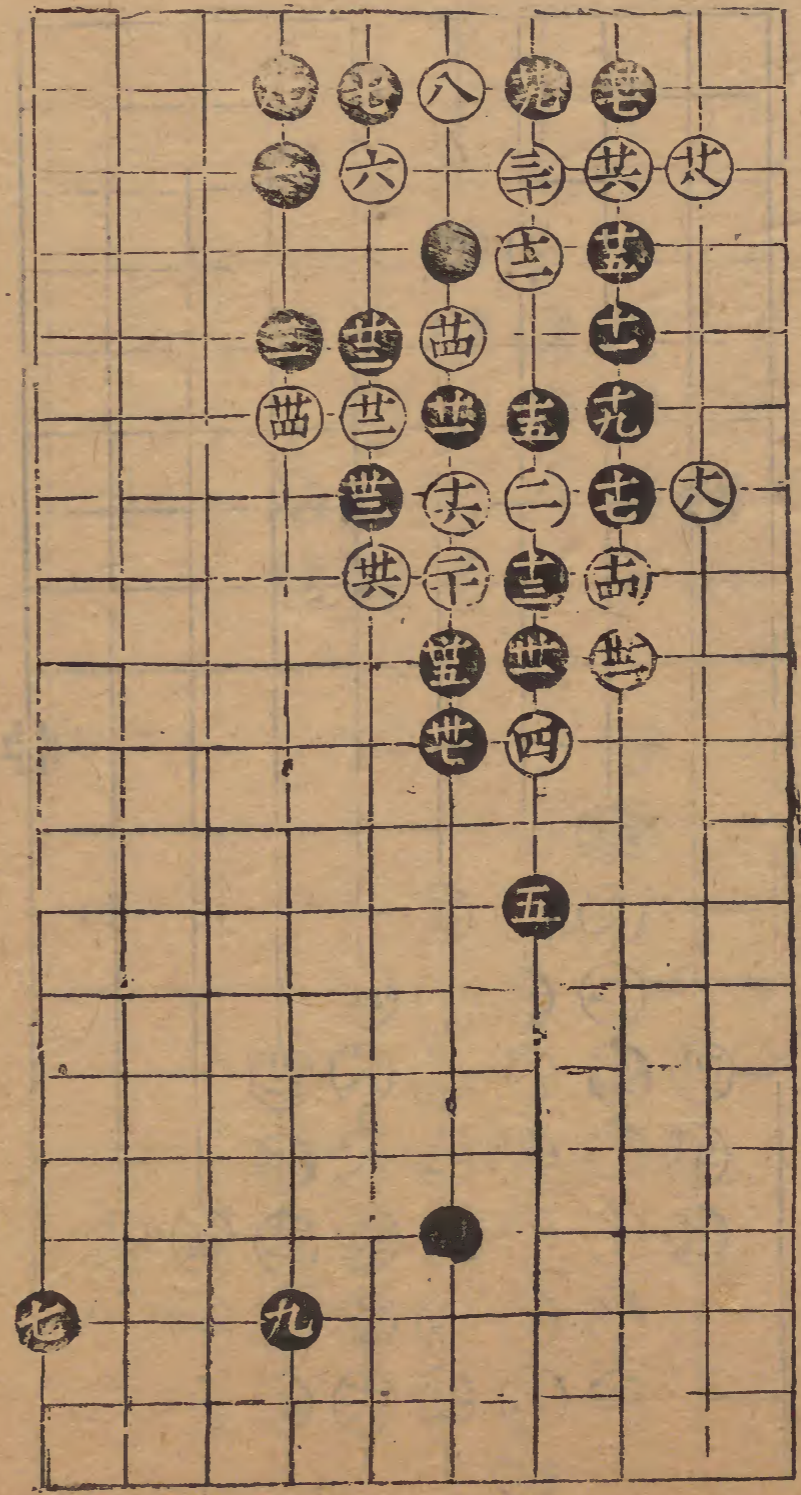 八 廿九 廿七
六 三十 廿六 廿八
十二 廿五
廿三 廿四 十一
卅四 廿二 廿一 十五 十九
卅三 十六 二 十七 十八
卅六 二十 十三 十四
卅五 卅一 卅二
卅七 四
五
七 九